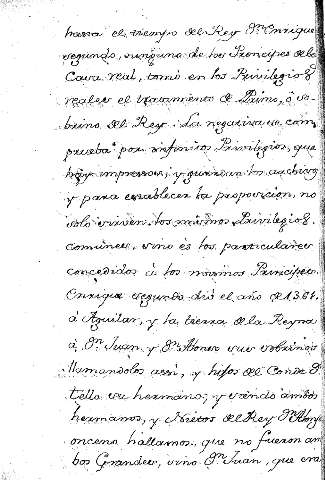 hasta el tiempo del Rey Dn. Enrique
segundo, ninguno de los Principes de la
Casa real, tomó en los Privilegios
reales el tratamiento de Primo, ó so-
brino del Rey: La negativa se com
prueba por infinitos Privilegios, que
hay impresos, y guardan los archivos
y para establecer la proposicion, no
solo sirven los mismos Privilegios
comunes, sino és los particulares
concedidos á los mismos Principes.
Enrique segundo dió el año de 1367.
á Aguilar, y la tierra de la Reyna
á Dn. Juan, y Dn. Alonso sus sobrinos
llamandolos asi, y hijos del Conde Dn.
Tello su hermano; y siendo ambos
hermanos, y Nietos del Rey Dn. Alonso
onceno hallamos que no fueron am
bos Grandes, sino Dn. Juan, que era